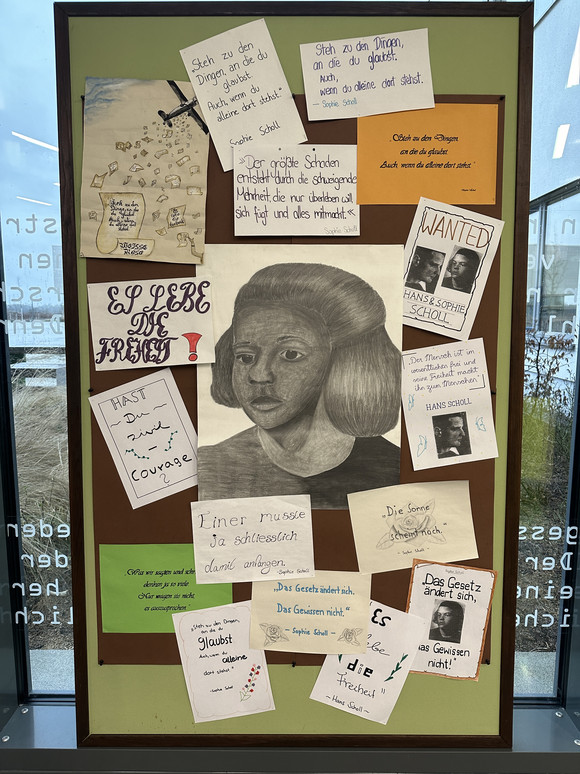 „Steh zu den
Dingen, an die du
glaubst.
Auch, wenn du
alleine dort stehst."
Sophie Scholl
Steh zu den Dingen,
an die du glaubst.
Auch,
wenn du alleine dort stehst.
- Sophie Scholl
„Steh zu den Dingen
an die du glaubst.
Auch, wenn du alleine dort stehst."
»Der größte Schaden
entsteht durch die schweigende
Mehrheit, die nur überleben will,
sich fügt und alles mitmacht.«
Sophie Scholl
WANTED
HANS & SOPHIE
SCHOLL
ES LEBE
DIE
FREIHEIT!
„Der Mensch ist im
wesentlichen frei und
seine Freiheit macht
ihn zum Menschen."
HANS SCHOLL
HAST
~ Du ~
zivil
courage
?
Einer musste
ja schliesslich
damit anfangen.
- Sophie Scholl
„Die Sonne
scheint noch."
- Sophie Scholl
„Was wir sagten und schrieben,
denken ja so viele.
Nur wagen sie nicht,
es auszusprechen."
„Das Gesetz ändert sich.
Das Gewissen nicht."
- Sophie Scholl -
„Das Gesetz
ändert sich,
das Gewissen
nicht!"
„Steh zu den Dingen,
an die du
glaubst.
Auch, wenn du
alleine
dort stehst."
- Sophie Scholl
Es
lebe
die
Freiheit"
~ Hans Scholl ~